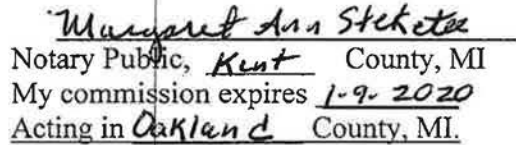 Margaret Ann Steketee
Notary Public, Kent County, MI
My commission expires 1-9-2020
Acting in Oakland County, MI.